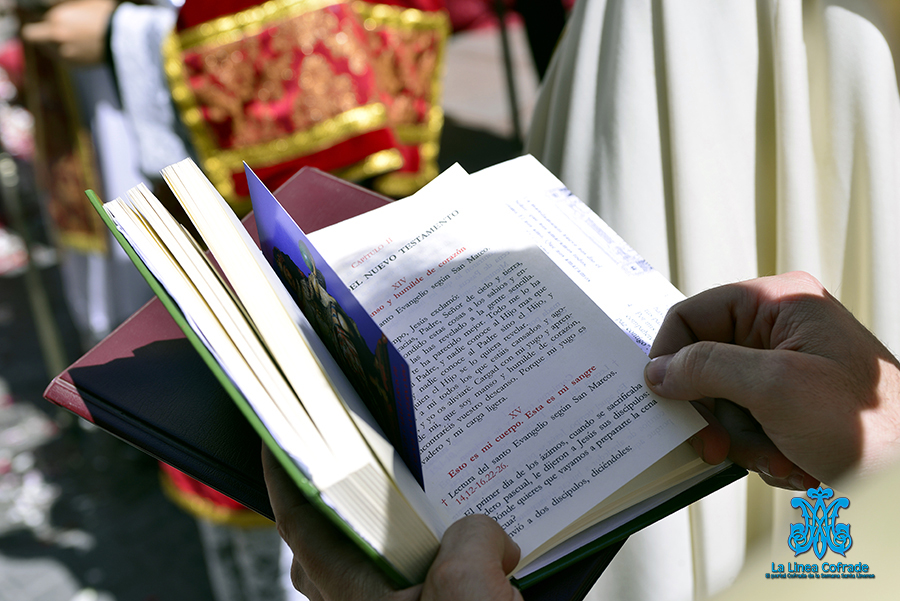 CAPITULO II
EL NUEVO TESTAMENTO
XIV
nso y humilde de corazón
anto Evangelio según San Mateo.
mpo, Jesús exclamó:
Padre, Señor de cielo y tierra,
estas cosas a los sabios y en-
las has revelado a la gente sencilla.
parecido mejor. Todo me lo ha
y nadie conoce al Hijo más que
conoce al Padre sino el Hijo, y
el Hijo se lo quiere revelar.
mí todos los que estáis cansados y ago-
yo os aliviaré. Cargad con mi yugo y apren-
mí, que soy manso y humilde de corazón,
contraréis vuestro descanso. Porque mi yugo es
vadero y mi carga ligera.
XV
Esto es mi cuerpo. Esta es mi sangre
† Lectura del santo Evangelio según San Marcos.
14,12-16.22-26
El primer día de los ázimos, cuando se sacrificaba
dero pascual, le dijeron a Jesús sus discípulos:
Dónde quieres que vayamos a preparar la cena
cua?
vió a dos discípulos, diciéndoles:
La Linea Cofrade
El portal Cofrade de la Semana Santa Linense